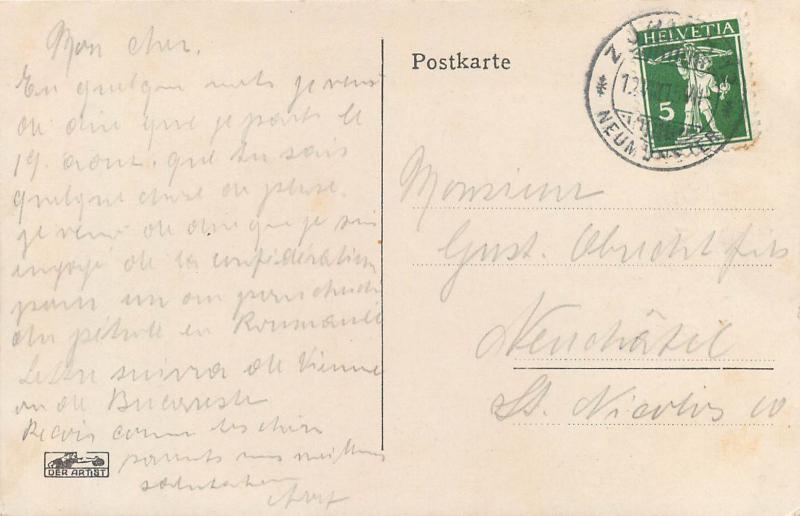 Mon cher,
En quelque mots je veux
de dire que je parte le
19. aout, que tu sais
quelque chose de plus.
je veux de dire que je suis
engagé de la confédération
pour un an pour chercher
du pétrole en Roumanie
Lettre suivra de Vienne
ou de Bucarest
Reçois comme tes chers
parents mes meilleurs
salutations
DER ARTIST
Postkarte
HELVETIA
5
NEUMÜNSTER
Monsieur
Gust. Obrecht fils
Neuchâtel
St. Nicolas 10